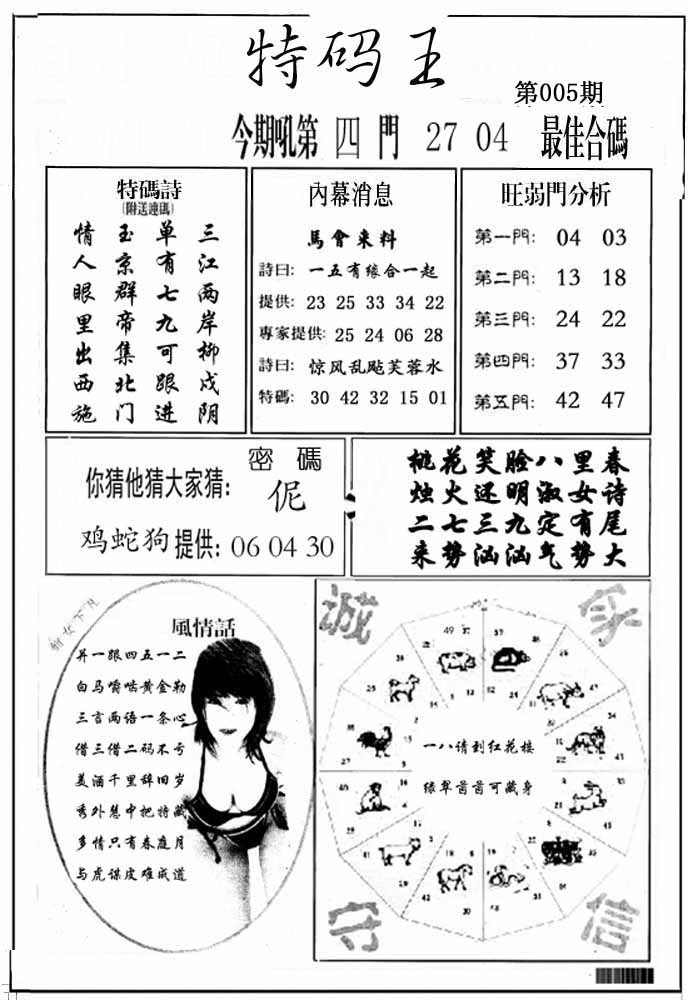 特码王
第005期
今期吼第 四 門 27 04 最佳合碼
特碼詩
(附送連碼)
三江两岸柳戍阴
单有七九可跟进
玉京群帝集北门
情人眼里出西施
內幕消息
馬會来料
詩曰: 一五有缘合一起
提供: 23 25 33 34 22
專家提供: 25 24 06 28
詩曰: 惊风乱飐芙蓉水
特碼: 30 42 32 15 01
旺弱門分析
第一門: 04 03
第二門: 13 18
第三門: 24 22
第四門: 37 33
第五門: 42 47
密碼
你猜他猜大家猜: 伲
鸡蛇狗 提供: 06 04 30
桃花笑脸八里春
烛火还明淑女诗
二七三九定有尾
来势汹汹气势大
風情話
一跟四五一二
白马嚼啮黄金勒
三言两语一条心
借三借二码不亏
美酒千里辞旧岁
秀外慧中把特藏
多情只有春庭月
与虎谋皮难成道
诚
守
信
49 37
一八请到红花楼
绿翠茵茵可藏身